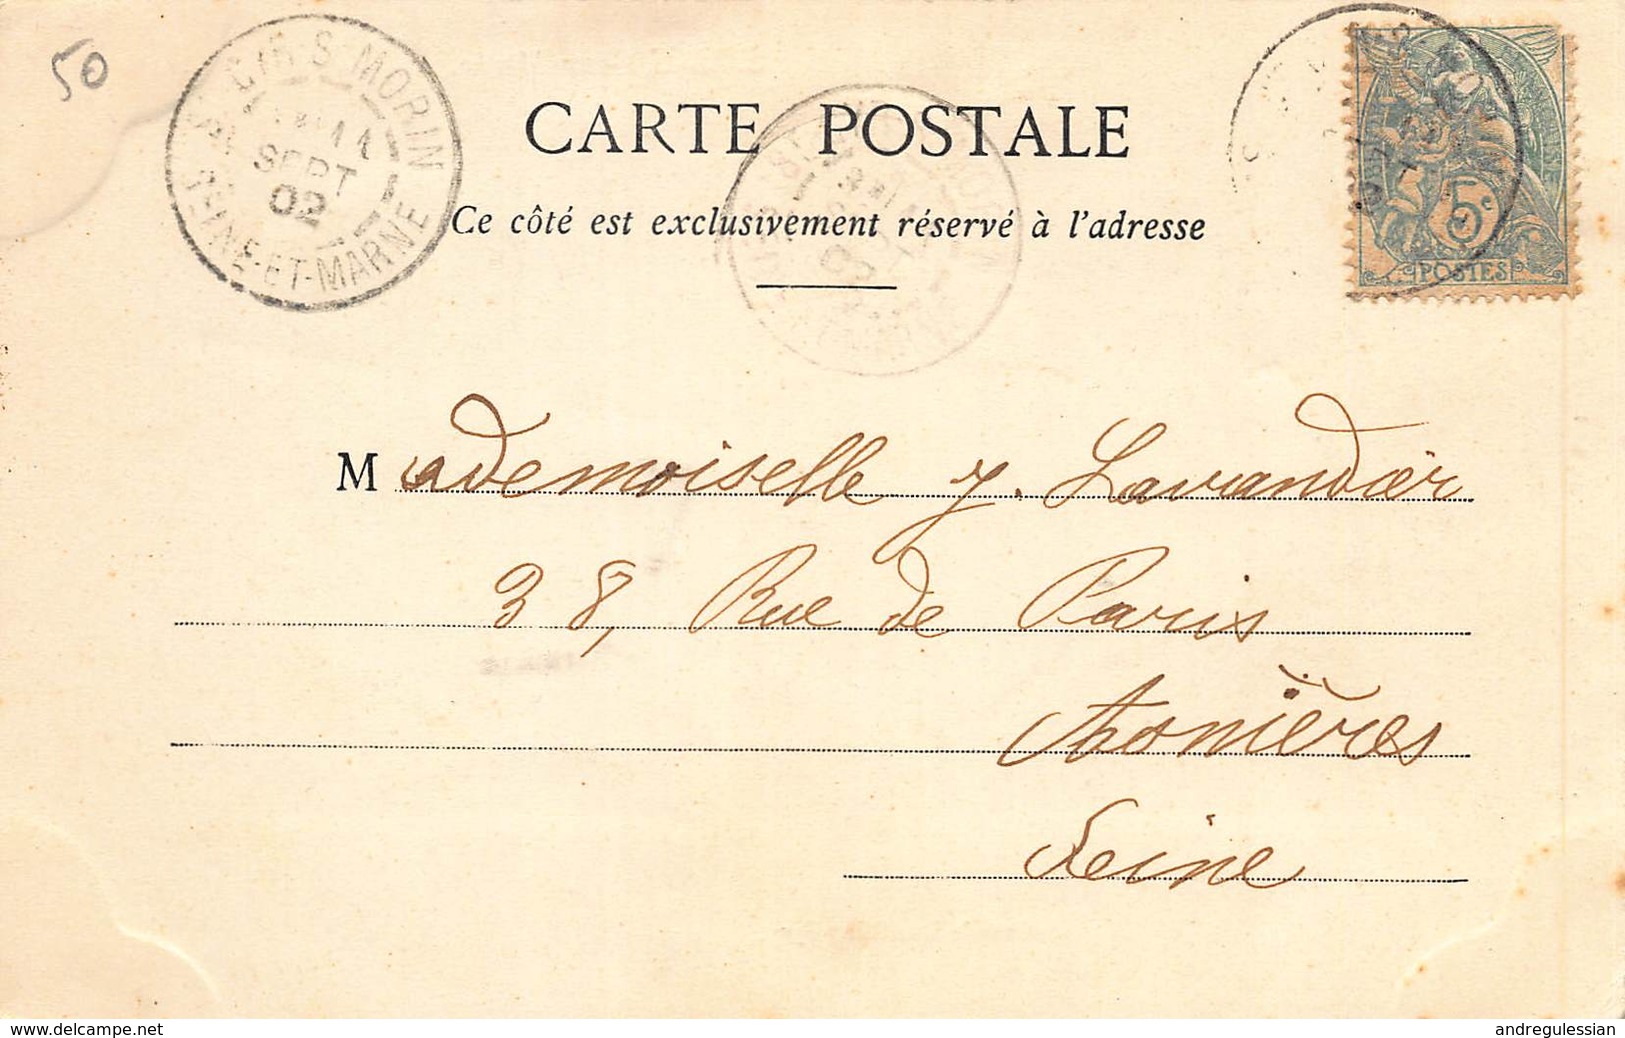 50
S MORIN
11
SEPT
02
SEINE-ET-MARNE
CARTE POSTALE
Ce côté est exclusivement réservé à l'adresse
5c
POSTES
Mademoiselle J. Lavandier
38, Rue de Paris
Asnières
Seine
www.delcampe.net
andregulessian